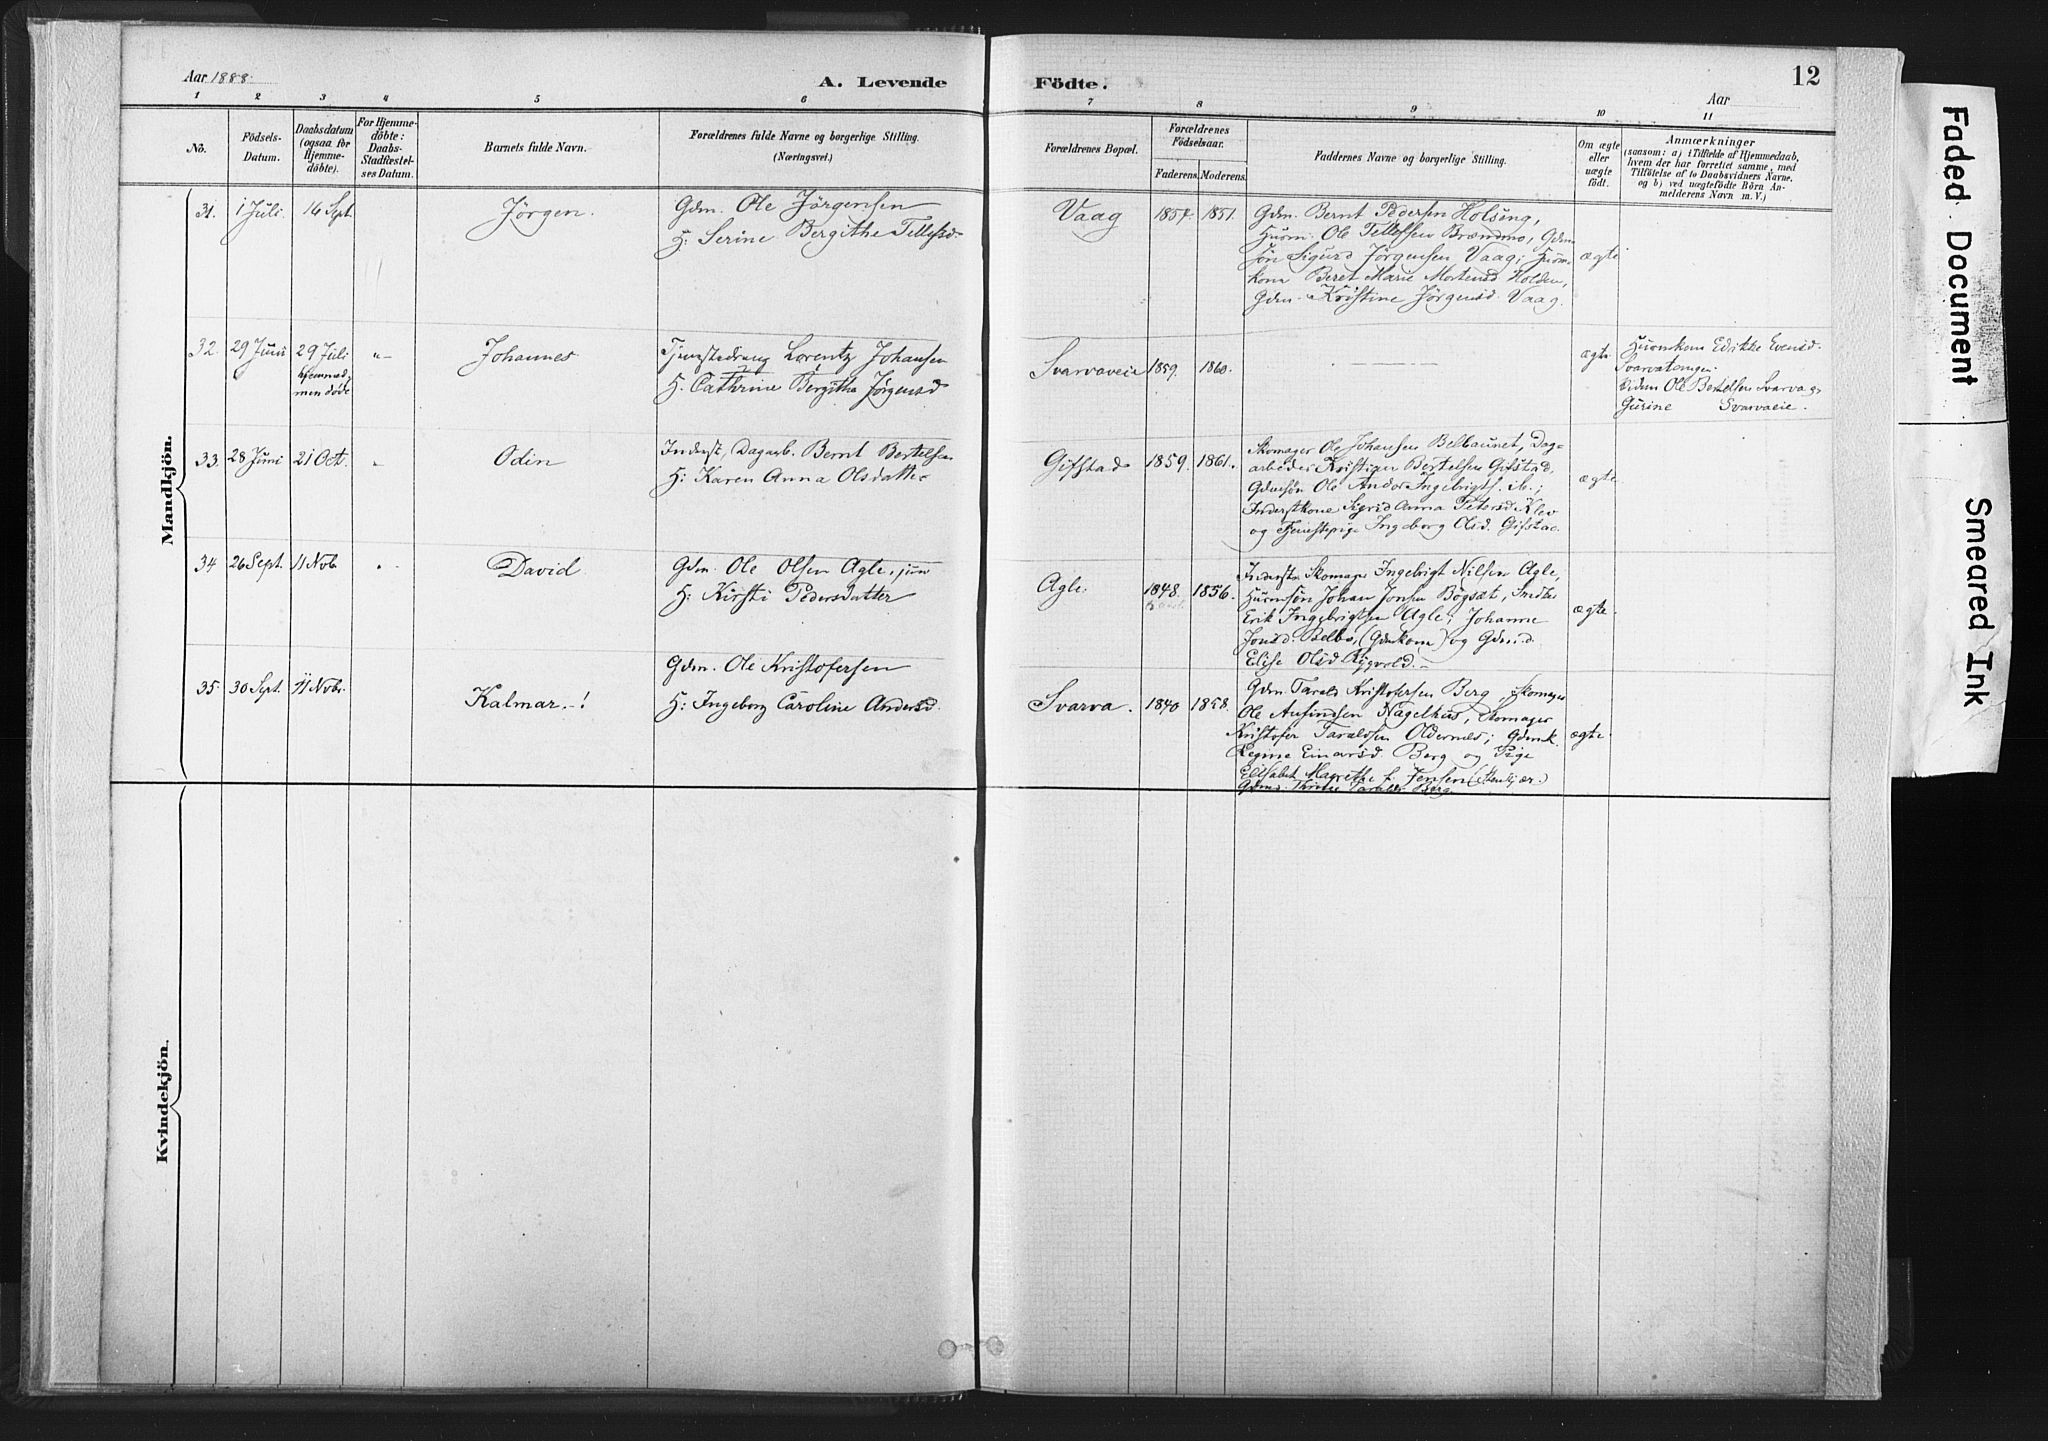 Aar 1888.
A. Levende
Födte.
12
Aar
1 2 3 4 5 6 7 8 9 10 11
No.
Födsels-
Datum.
Daabsdatum
(ogsaa for
Hjemme-
döbte).
For Hjemme-
döbte:
Daabs-
Stadfæstel-
ses Datum.
Barnets fulde Navn.
Forældrenes fulde Navne og borgerlige Stilling.
(Næringsvei.)
Forældrenes Bopæl.
Forældrenes
Födselsaar.
Faderens. Moderens.
Faddernes Navne og borgerlige Stilling.
Om ægte
eller
uægte
födt.
Anmærkninger
(saasom: a) i Tilfælde af Hjemmedaab,
hvem der har forrettet samme, med
Tilföielse af to Daabsvidners Navne,
og b) ved uægtefödte Börn An-
melderens Navn m. V.)
Mandkjön.
31. 1 Juli. 16 Sept. Jörgen.
Gdm. Ole Jörgensen
H: Serine Bergithe Tellefsd.
Vaag 1857. 1851.
Gdm. Bernt Pedersen Holsing,
Husm. Ole Tellefsen Brændmo, Gdm
Sön Sigurd Jörgensen Vaag; Husm-
kone Beret Marie Mortensd. Holden,
Gdm. Kristine Jörgensd. Vaag.
ægte
32. 29 Juni 29 Juli
hjemmed.
men döde
"- Johannes
Tjenestedreng Lorentz Johansen
H. Cathrine Bergitha Jørgensd
Svarvaveie 1859. 1860.
ægte
Husmkone Edikke Evensd.
Svarvatangen
Gdm Ole Bertelsen Svarva og
Gurine Svarvaeie.
33. 28 Juni 21 Oct. " Odin
Inderst, Dagarb. Bernt Bertelsen
H: Karen Anna Olsdatter
Gifstad 1859. 1861.
Skomager Ole Johansen Belbaunet, Dag-
arbeder Kristian Bertelsen Gifstad,
Gdmsön Ole Andor Ingebrigts. ib.;
Inderstkone Sigrid Anna Petersd. Klev
og Tjenestepige Ingeborg Olsd. Gifstad.
ægte
34 26 Sept. 11 Novb. " David.
Gdm. Ole Olsen Agle, jun
H: Kirsti Pedersdatter
Agle. 1848. 1856.
Inderst Skomager Ingebrigt Nilsen Agle,
Husmsön Johan Jonsen Bögsæt, Inderst
Erik Ingebrigtsen Agle; Johanne
Jonsd. Belbo, (Gdmkone) og Gdmd.
Elise Olsd. Rygvold.-
ægte
35. 30 Sept. 11 Novb. Kalmar.-!
Gdm. Ole Kristofersen
H: Ingeborg Caroline Andersd.
Svarva. 1840 1858.
Gdm. Tarald Kristofersen Berg, Skomager
Ole Anfindsen Nagelhus, Skomager
Kristofer Taraldsen Oldernæs; Gdmk.
Regine Einarsd Berg og Pige
Elisabet Magrethe f. Jensen (Stenkjær.)
Gdmd. Taraldsd Berg
ægte.
Kvindekjön.
Faded Document
Smeared Ink